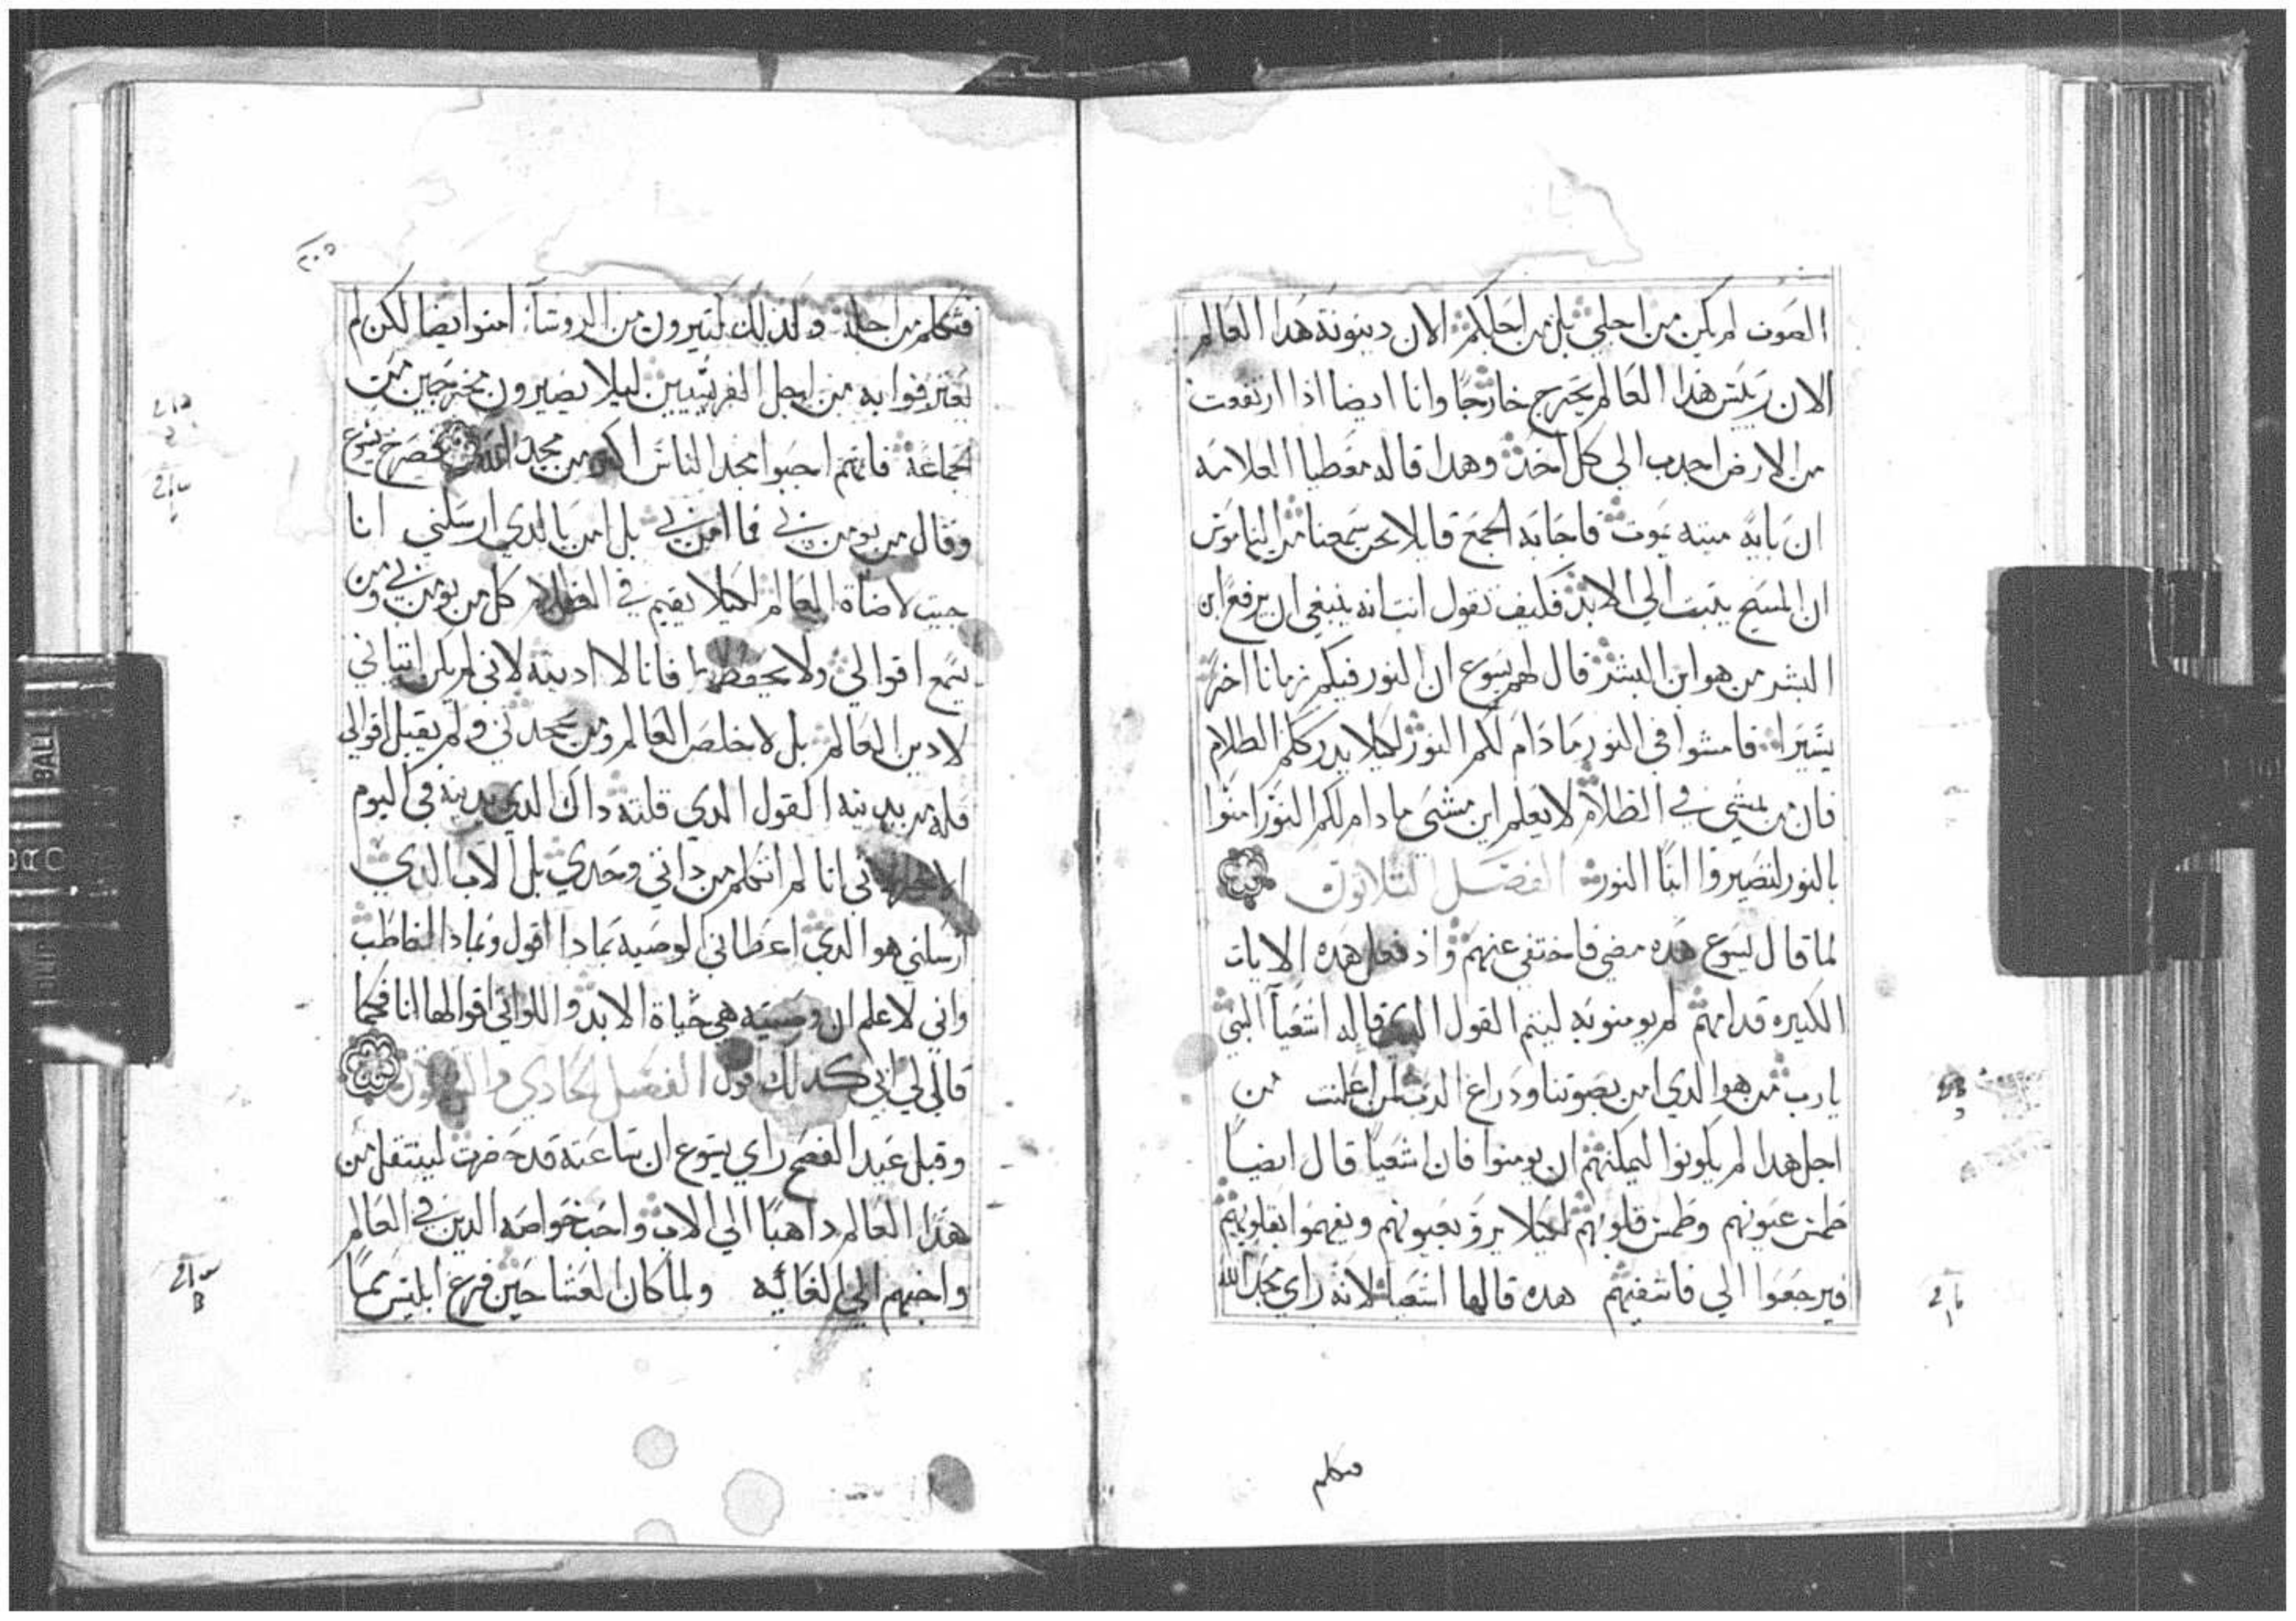 الصوت لم يكن من اجلي بل من اجلكم الان دينونة هدا العالم
الان رييس هدا العالم يخرج خارجا وانا ايضا ادا ارتفعت
من الارض اجدب الي كل احد وهدا قاله معطيا العلامه
ان باية ميته يموت فاجابه الجمع قايلا نحن سمعنا من الناموس
ان المسيح يثبت الي الابد فكيف تقول انت انه ينبغي ان يرفع ابن
البشر من هو ابن البشر قال لهم يسوع ان النور فيكم زمانا اخر
يسيرا فامشوا في النور ما دام لكم النور لكيلا يدرككم الظلام
فان من يمشي في الظلام لا يعلم اين يمشي ما دام لكم النور امنوا
بالنور لتصيروا ابنا النور الفصل الثلاثون
لما قال يسوع هده مضي فاختفي عنهم واذ فعل هده الايات
الكثيره قدامهم لم يومنوا به ليتم القول الدي قاله اشعيا النبي
يارب من هو الدي امن بصوتنا ودراع الرب لمن اعلنت من
اجل هدا لم يكونوا ليمكنهم ان يومنوا فان اشعيا قال ايضا
طمس عيونهم وطمس قلوبهم لكيلا يرو بعيونهم ويفهموا بقلوبهم
فيرجعوا الي فاشفيهم هده قالها اشعيا لانه راي مجد الله
فتكلم
فتكلم من اجله وكدلك كتيرون من الروسا امنوا ايضا لكن لم
يعترفوا به من اجل الفريسيين ليلا يصيرون مخرجين من
الجماعة فانهم احبوا مجد الناس اكثر من مجد الله فصرخ يسوع
وقال من يومن بي فما امن بي بل امن بالدي ارسلني انا
جيت لاضاة العالم لكيلا يقيم في الظلام كل من يومن بي ومن
يسمع اقوالي ولا يحفظها فانا لا ادينه لاني لم يكن اتياني
لادين العالم بل لاخلص العالم ومن يجحدني ولم يقبل اقوالي
فله من يدينه القول الدي قلته داك الدي يدينه في اليوم
الاخير اني انا لم اتكلم من داتي وحدي بل الاب الدي
ارسلني هو الدي اعطاني الوصيه بمادا اقول وبمادا اخاطب
واني لاعلم ان وصيته هي حياة الابد واللواتي اقولها انا فكما
قال لي ابي كدلك اقول الفصل الحادي والثلاثون
وقبل عيد الفصح راي يسوع ان ساعته قد حضرت لينتقل من
هدا العالم داهبا الي الاب واحب خواصه الدين في العالم
واحبهم الي الغايه ولما كان العشا حين فرغ ابليس مما